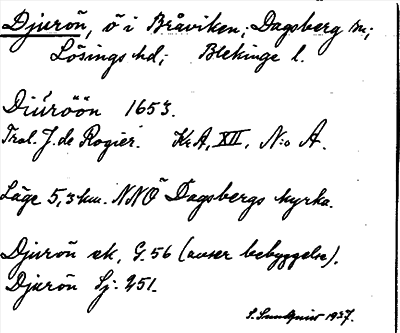 Djurön, ö i Bråviken; Dagsberg sn;
Lösings hd; Blekinge l.
Diúröön 1653.
Trol. J. de Rogier. Kr A, XII, N:o A.
Läge 5,3 km. NNÖ Dagsbergs kyrka.
Djurön ek, G. 56 (avser bebyggelse).
Djurön Sj: 251.
S. Sundqvist 1937.